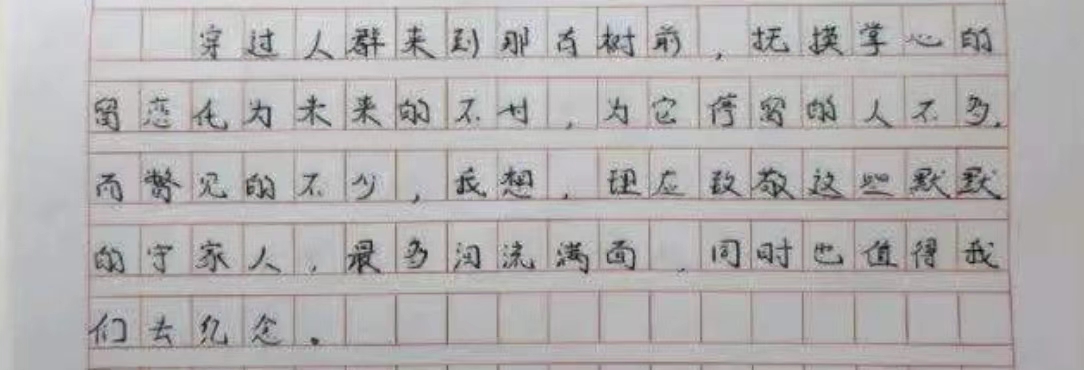 穿过人群来到那古树前，抚摸掌心的
留恋化为未来的不甘，为它停留的人不多，
而瞥见的不少，我想，理应致敬这些默默
的守家人，最多泪流满面，同时也值得我
们去纪念。